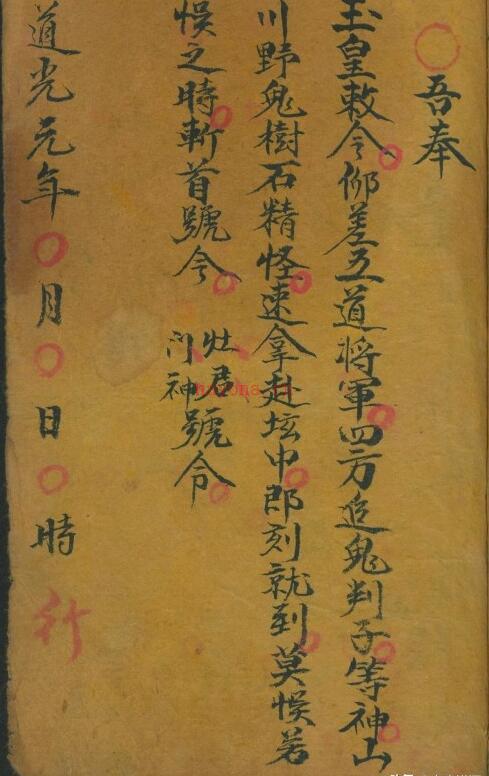 吾奉
玉皇敕令仰差五道將軍四方追鬼判子等神山
川野鬼樹石精怪速拿赴坛中即刻就到莫悮若
悮之時斬首號令
灶君
门神
號令
道光元年〇月〇日〇時行